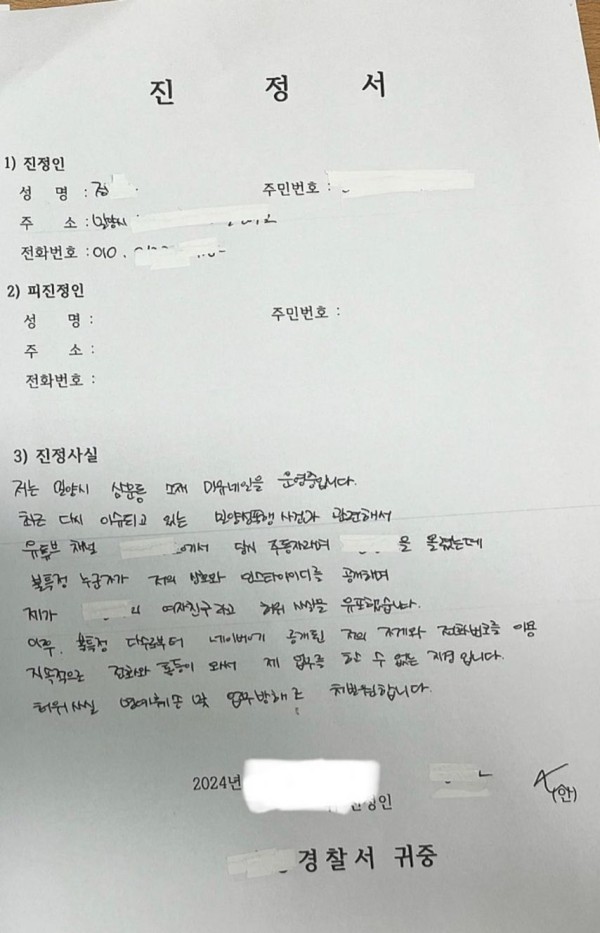 진 정 서
1) 진정인
성 명 : 정
주민번호 :
주 소 : 밀양시
전화번호 : 010.
2) 피진정인
성 명 :
주민번호 :
주 소 :
전화번호 :
3) 진정사실
저는 밀양시 삼문동 소재 미유네일을 운영중입니다.
최근 다시 이슈되고 있는 밀양성폭행 사건과 관련해서
유튜브 채널 에서 당시 주동자라며 을 올렸는데
불특정 누군가가 저의 상호와 인스타아이디를 공개하며
제가 의 여자친구라고 허위 사실을 유포했습니다.
이후, 불특정 다수로부터 네이버에 공개된 저의 가게와 전화번호를 이용
지속적으로 전화와 톡등이 와서 제 업무를 할 수 없는 지경입니다.
허위사실 명예훼손 및 업무방해로 처벌원합니다.
2024년
진정인
(인)
경찰서 귀중